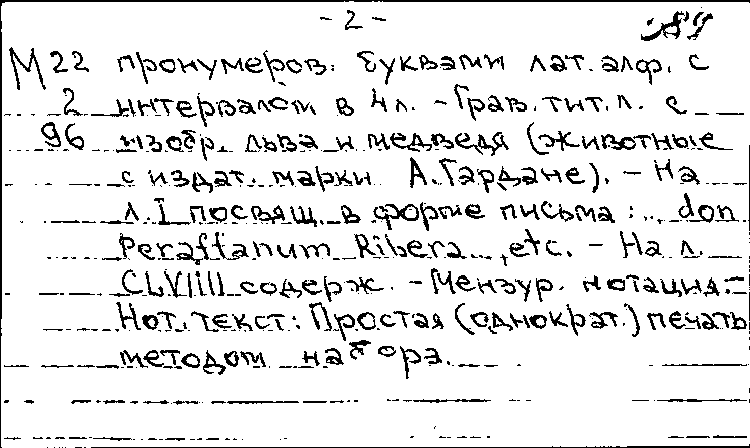 - 2 -
М 22 пронумеров. буквами лат. алф. с
2 интервалом в 4 л. - Грав. тит. л. с
96 изобр. льва и медведя (животные
с издат. марки А. Гардане). - На
л. I посвящ. в форме письма: „ don
Peraffanum Ribera..., etc. - На л.
CLVIIII содерж. - Мензур. нотация. -
Нот. текст: Простая (однократ.) печать
методом набора.